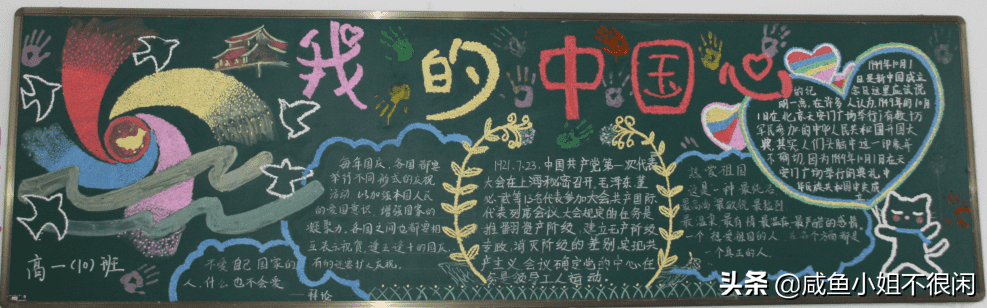 我的中国心
高一(10)班
不爱自己国家的
人,什么也不会爱
——拜伦
每年国庆,各国都要
举行不同形式的庆祝
活动,以加强本国人民
的爱国意识,增强国家的
凝聚力。各国之间也都要相
互表示祝贺,逢五逢十的国庆,
有的还要扩大庆祝。
1921.7.23.中国共产党第一次代表
大会在上海秘密召开,毛泽东董
必武等13名代表参加大会共产国际
代表列席会议大会规定的任务是
推翻资产阶级,建立无产阶级
专政,消灭阶级的差别,实现共
产主义,会议确定当前中心任
务是领导工人运动。
热爱祖国
这是一种最纯洁
最高尚最强烈
最温柔最有情最温存最严酷的感情
一个热爱祖国的人
一个真正的人
1949年10月1
日是新中国成立
的纪念日这里应该说
明一点,在许多人认为,1949年的10月
1日在北京天安门广场举行了有数十万
军民参加的中华人民共和国开国大
典其实人们头脑中这一印象并
不确切,因为1949年10月1日在天
安门广场举行的典礼,中
华人民共和国中央成
立
头条 @咸鱼小姐不很闲